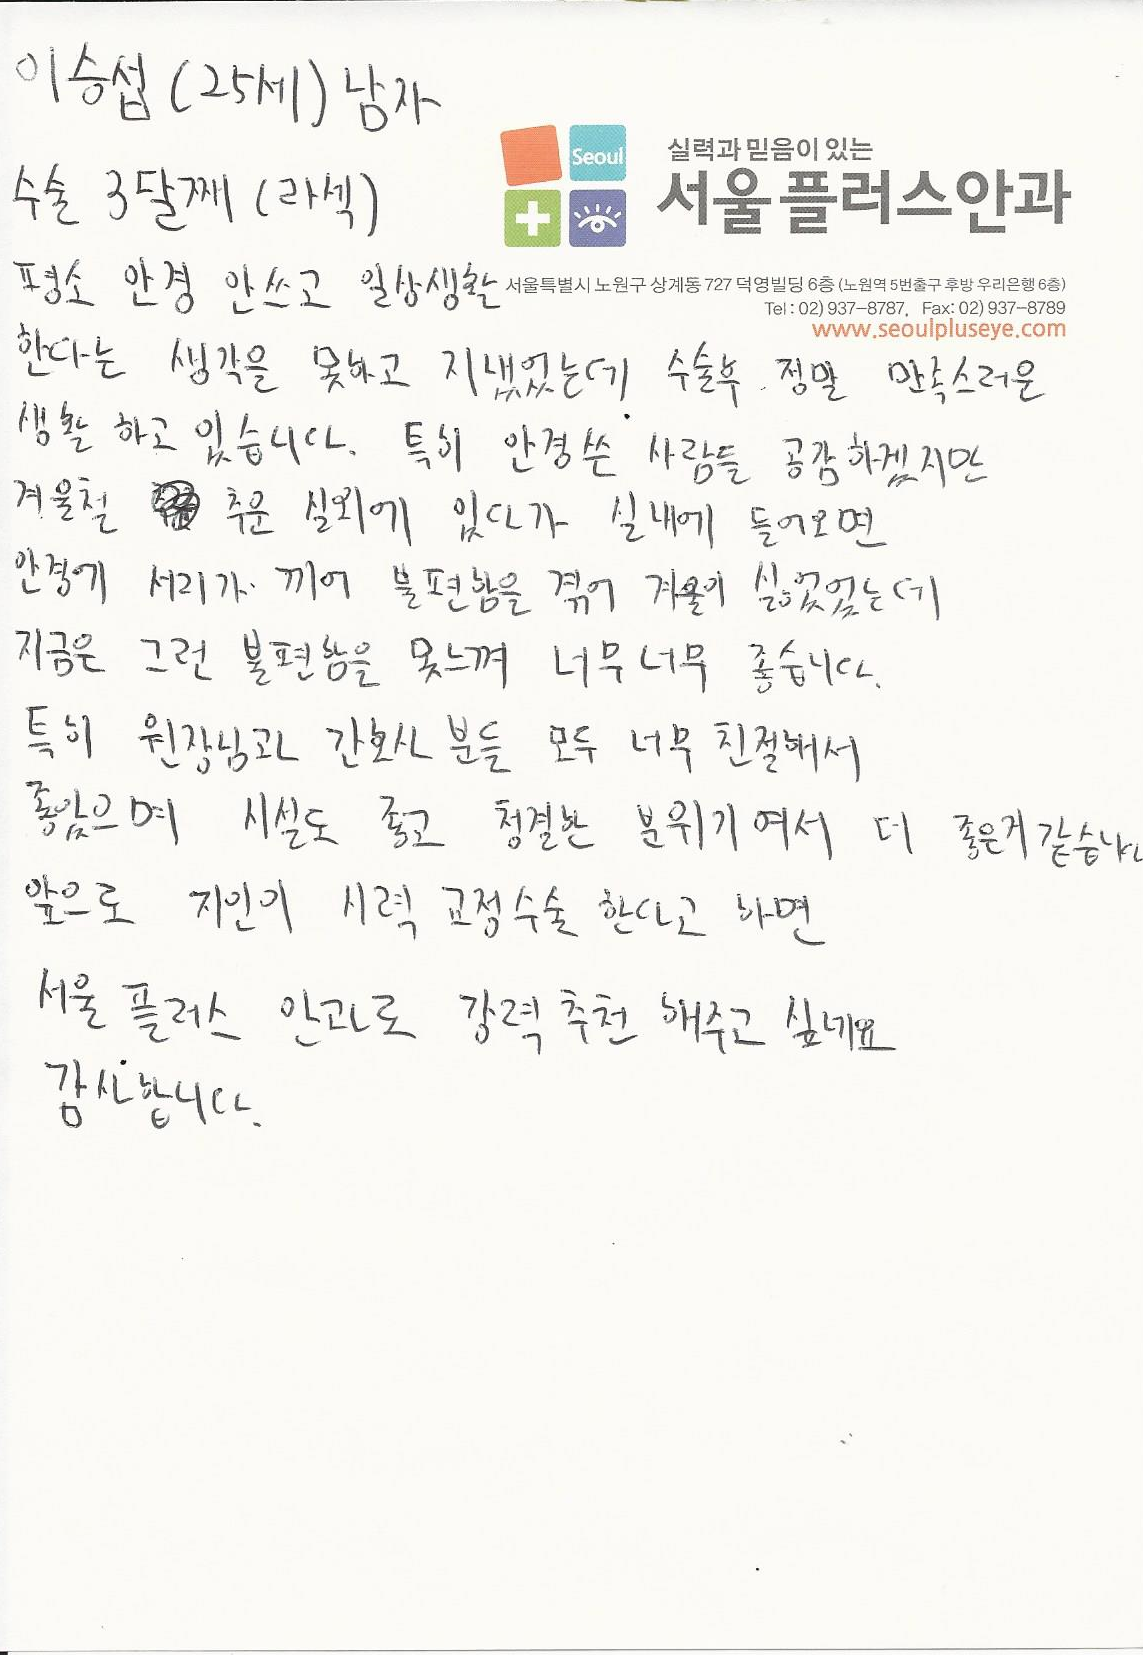 이승섭 (25세) 남자
Seoul
실력과 믿음이 있는
서울플러스안과
수술 3달째 (라섹)
서울특별시 노원구 상계동 727 덕영빌딩 6층 (노원역 5번출구 후방 우리은행 6층)
Tel : 02) 937-8787, Fax: 02) 937-8789
www.seoulpluseye.com
평소 안경 안쓰고 일상생활
한다는 생각을 못하고 지냈었는데 수술후 정말 만족스러운
생활 하고 있습니다. 특히 안경쓴 사람들 공감하겠지만
겨울철 추운 실외에 있다가 실내에 들어오면
안경에 서리가 끼어 불편함을 겪어 겨울이 싫었었는데
지금은 그런 불편함을 못느껴 너무너무 좋습니다.
특히 원장님과 간호사 분들 모두 너무 친절해서
좋았으며 시설도 좋고 청결한 분위기여서 더 좋은거 같습니다
앞으로 지인이 시력 교정수술 한다고 하면
서울 플러스 안과로 강력 추천 해주고 싶네요
감사합니다.